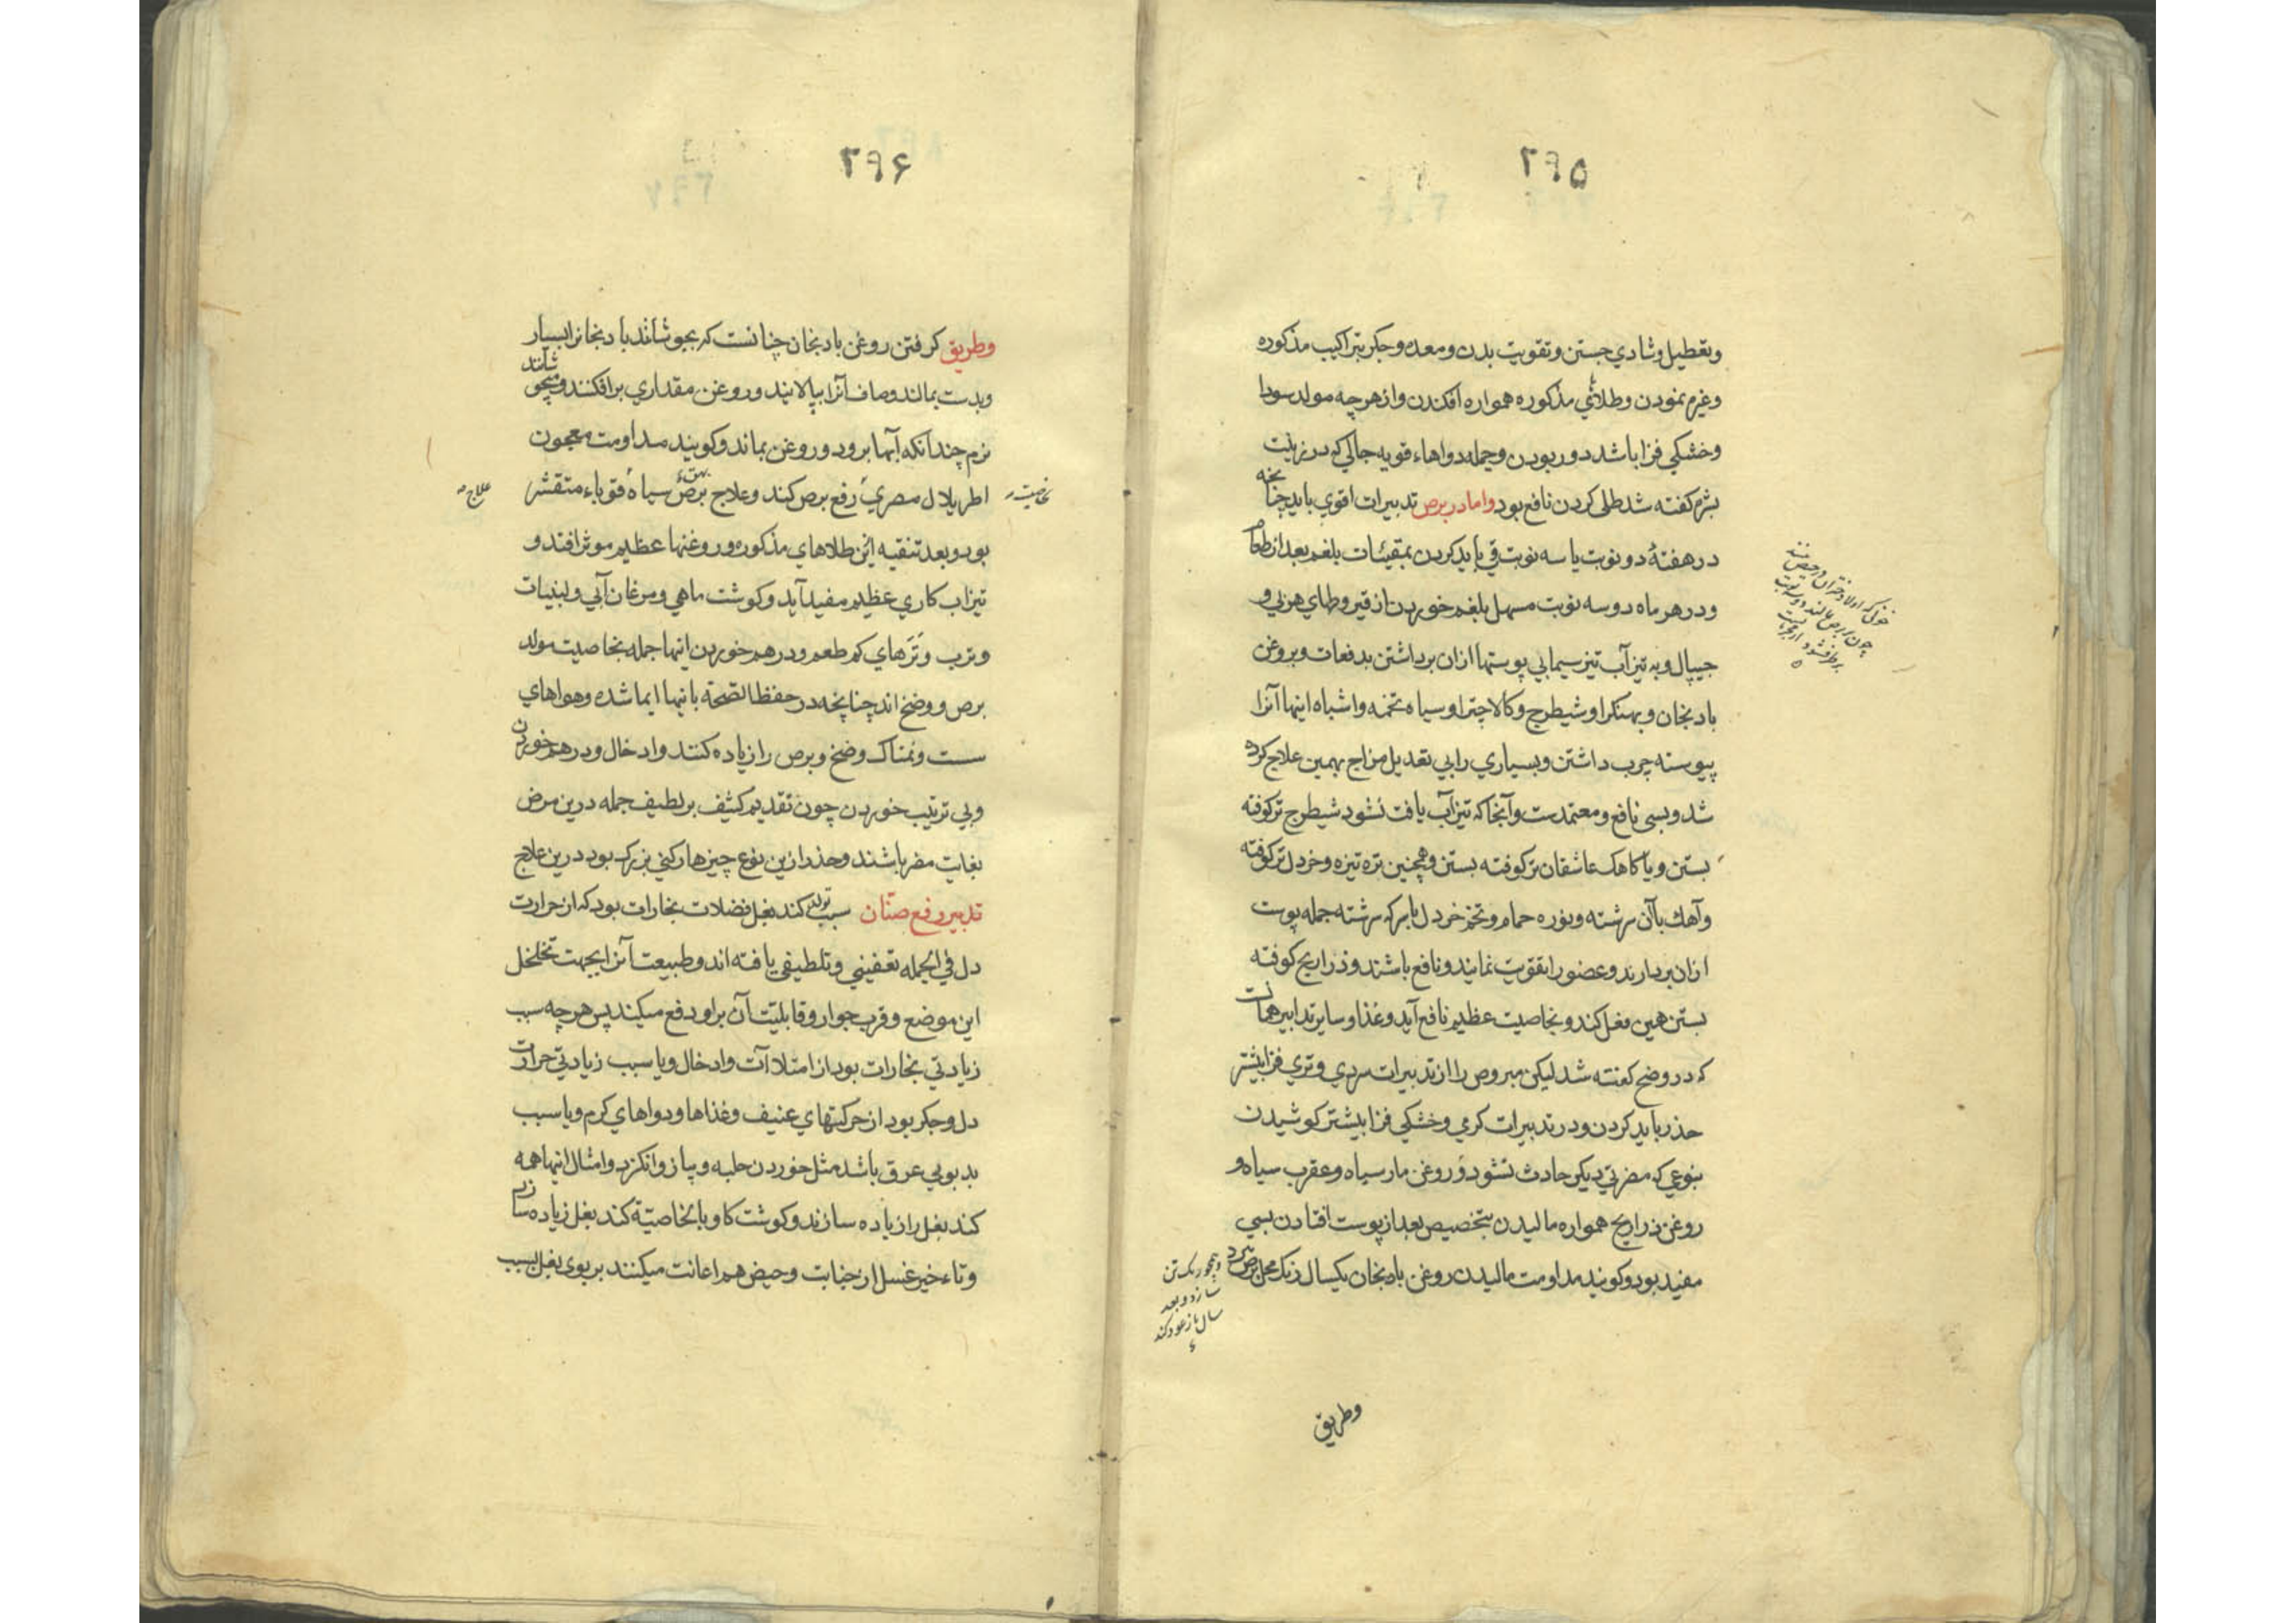 ۲۹۵
وتعطیل وشادي جستن وتقویت بدن ومعده وجکر بتراکیب مذکوره
وغرم نمودن وطلائي مذکوره همواره افکندن واز هر چه مولد سودا
وخشکي فزا باشد دور بودن وجمله دواهاء قویه جالي که در زینت
بشره کفته شد طلی کردن نافع بود واما در برص تدبیرات اقوي باید چنانچه
در هفتهٔ دو نوبت یا سه نوبت قي باید کردن بمقیئات بلغم بعد از طعام
ودر هر ماه دو سه نوبت مسهل بلغم خوردن از قیروطهاي هربي و
جیپال وبه تیزآب تیز سیمابي پوستها ازان برداشتن بدفعات وبروغن
بادنجان وبهنکرا وشیطرج وکالاچترا وسیاه تخمه واشباه اینها آنرا
پیوسته چرب داشتن وبسیاري را بي تعدیل مزاج بهمین علاج کرده
شد وبسی نافع ومعتمدست وآنجا که تیزآب یافت نشود شیطرج تر کوفته
بستن ویا کاهک عاشقان تر کوفته بستن وهمچنین تره تیزه وخردل تر کوفته
وآهك بآن سرشته ونوره حمام وتخم خردل با سرکه سرشته جمله پوست
ازان بردارند وعضو را تقویت نمایند ونافع باشند وذراریح کوفته
بستن همین فعل کند وبخاصیت عظیم نافع آید وغذا وسایر تدابیر همانست
که در وضح کفته شد لیکن مبروص را از تدبیرات سردي وتري فزا بیشتر
حذر باید کردن ودر تدبیرات کرمي وخشکي فزا بیشتر کوشیدن
بنوعي که مضرتي دیکر حادث نشود وروغن مار سیاه وعقرب سیاه و
روغن ذراریح همواره مالیدن بتخصیص بعد از پوست افتادن بسي
مفید بود وکویند مداومت مالیدن روغن بادنجان یکسال رنک محل برص را
وهمچو رنک تن
سازد وبعد
سال باز عود کند
وطریق
۲۹۶
وطریق کرفتن روغن بادنجان چنانست که بجوشانند بادنجانرا بسیار
وبدست بمالند وصاف آنرا بپالایند وروغن مقداري برافکنند ومیجوشانند
نرم چندانکه آبها برود وروغن بماند وکویند مداومت معجون
اطریلال مصري رفع برص کند وعلاج برص سیاه قوباء متقشر
بخاصیت
بهق
علاج
بود وبعد تنقیه این طلاهاي مذکوره وروغنها عظیم موثر افتد و
تیزاب کاري عظیم مفید آید وکوشت ماهي ومرغان آبي ولبنیات
وترب وتَرَهاي کم طعم ودرهم خوردن اینها جمله بخاصیت مولد
برص ووضح اند چنانچه در حفظ الصحة بانیها ایما شده وهواهاي
ست ونمناک وضح وبرص را زیاده کنند وادخال ودرهم خوردن
وبي ترتیب خوردن چون تقدیم کثیف بر لطیف جمله درین مرض
بغایت مضر باشند وحذر ازین نوع چیزها رکني بزرک بود درین علاج
تدبیر رفع صنان سبب تولد کند بغل فضلات بخارات بود که از حرارت
دل في الجمله تعفیني وتلطیفي یافته اند وطبیعت آنرا بجهت تخلخل
این موضع وقرب جوار وقابلیت آن براو دفع میکند پس هر چه سبب
زیادتي بخارات بود از امتلاآت وادخال ویا سبب زیادتي حرارت
دل وجکر بود از حرکتهاي عنیف وغذاها ودواهاي کرم ویا سبب
بدبویي عرق باشد مثل خوردن حلبه وپیاز وانکزد وامثال انیها همه
کند بغل را زیاده سازند وکوشت کاو بالخاصیة کند بغل زیاده سازد
وتاءخیر غسل از جنابت وحیض هم اعانت میکنند بر بوی بغل بسبب